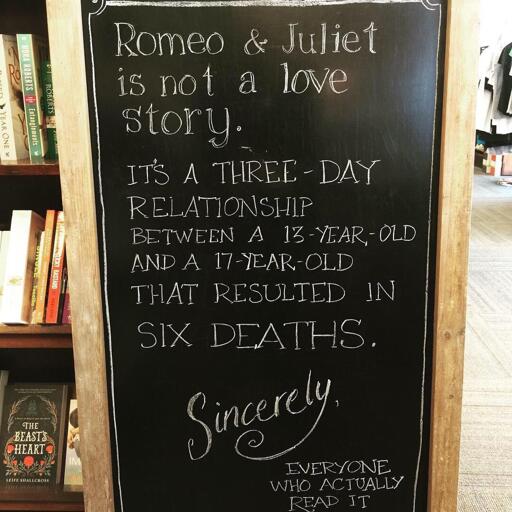 Romeo & Juliet
is not a love
story.
IT'S A THREE-DAY
RELATIONSHIP
BETWEEN A 13-YEAR-OLD
AND A 17-YEAR-OLD
THAT RESULTED IN
SIX DEATHS.
Sincerely,
EVERYONE
WHO ACTUALLY
READ IT
YEAR ONE
NORA ROBERTS
THE
BEAST'S
HEART
LEIFE SHALLCROSS